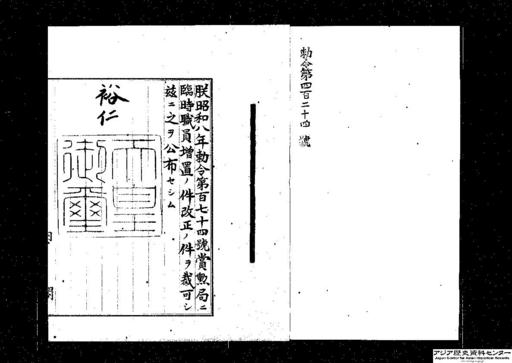 勅令第四百二十四號
朕昭和八年勅令第百七十四號賞勲局ニ
臨時職員増置ノ件改正ノ件ヲ裁可シ
玆ニ之ヲ公布セシム
裕仁
天皇
御璽
内閣
アジア歴史資料センター
Japan Center for Asian Historical Records